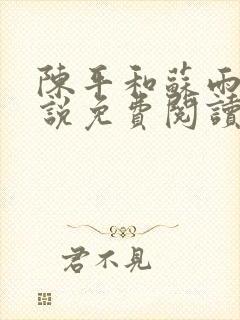 陳平和蘇雨
說免費閱讀
君不見